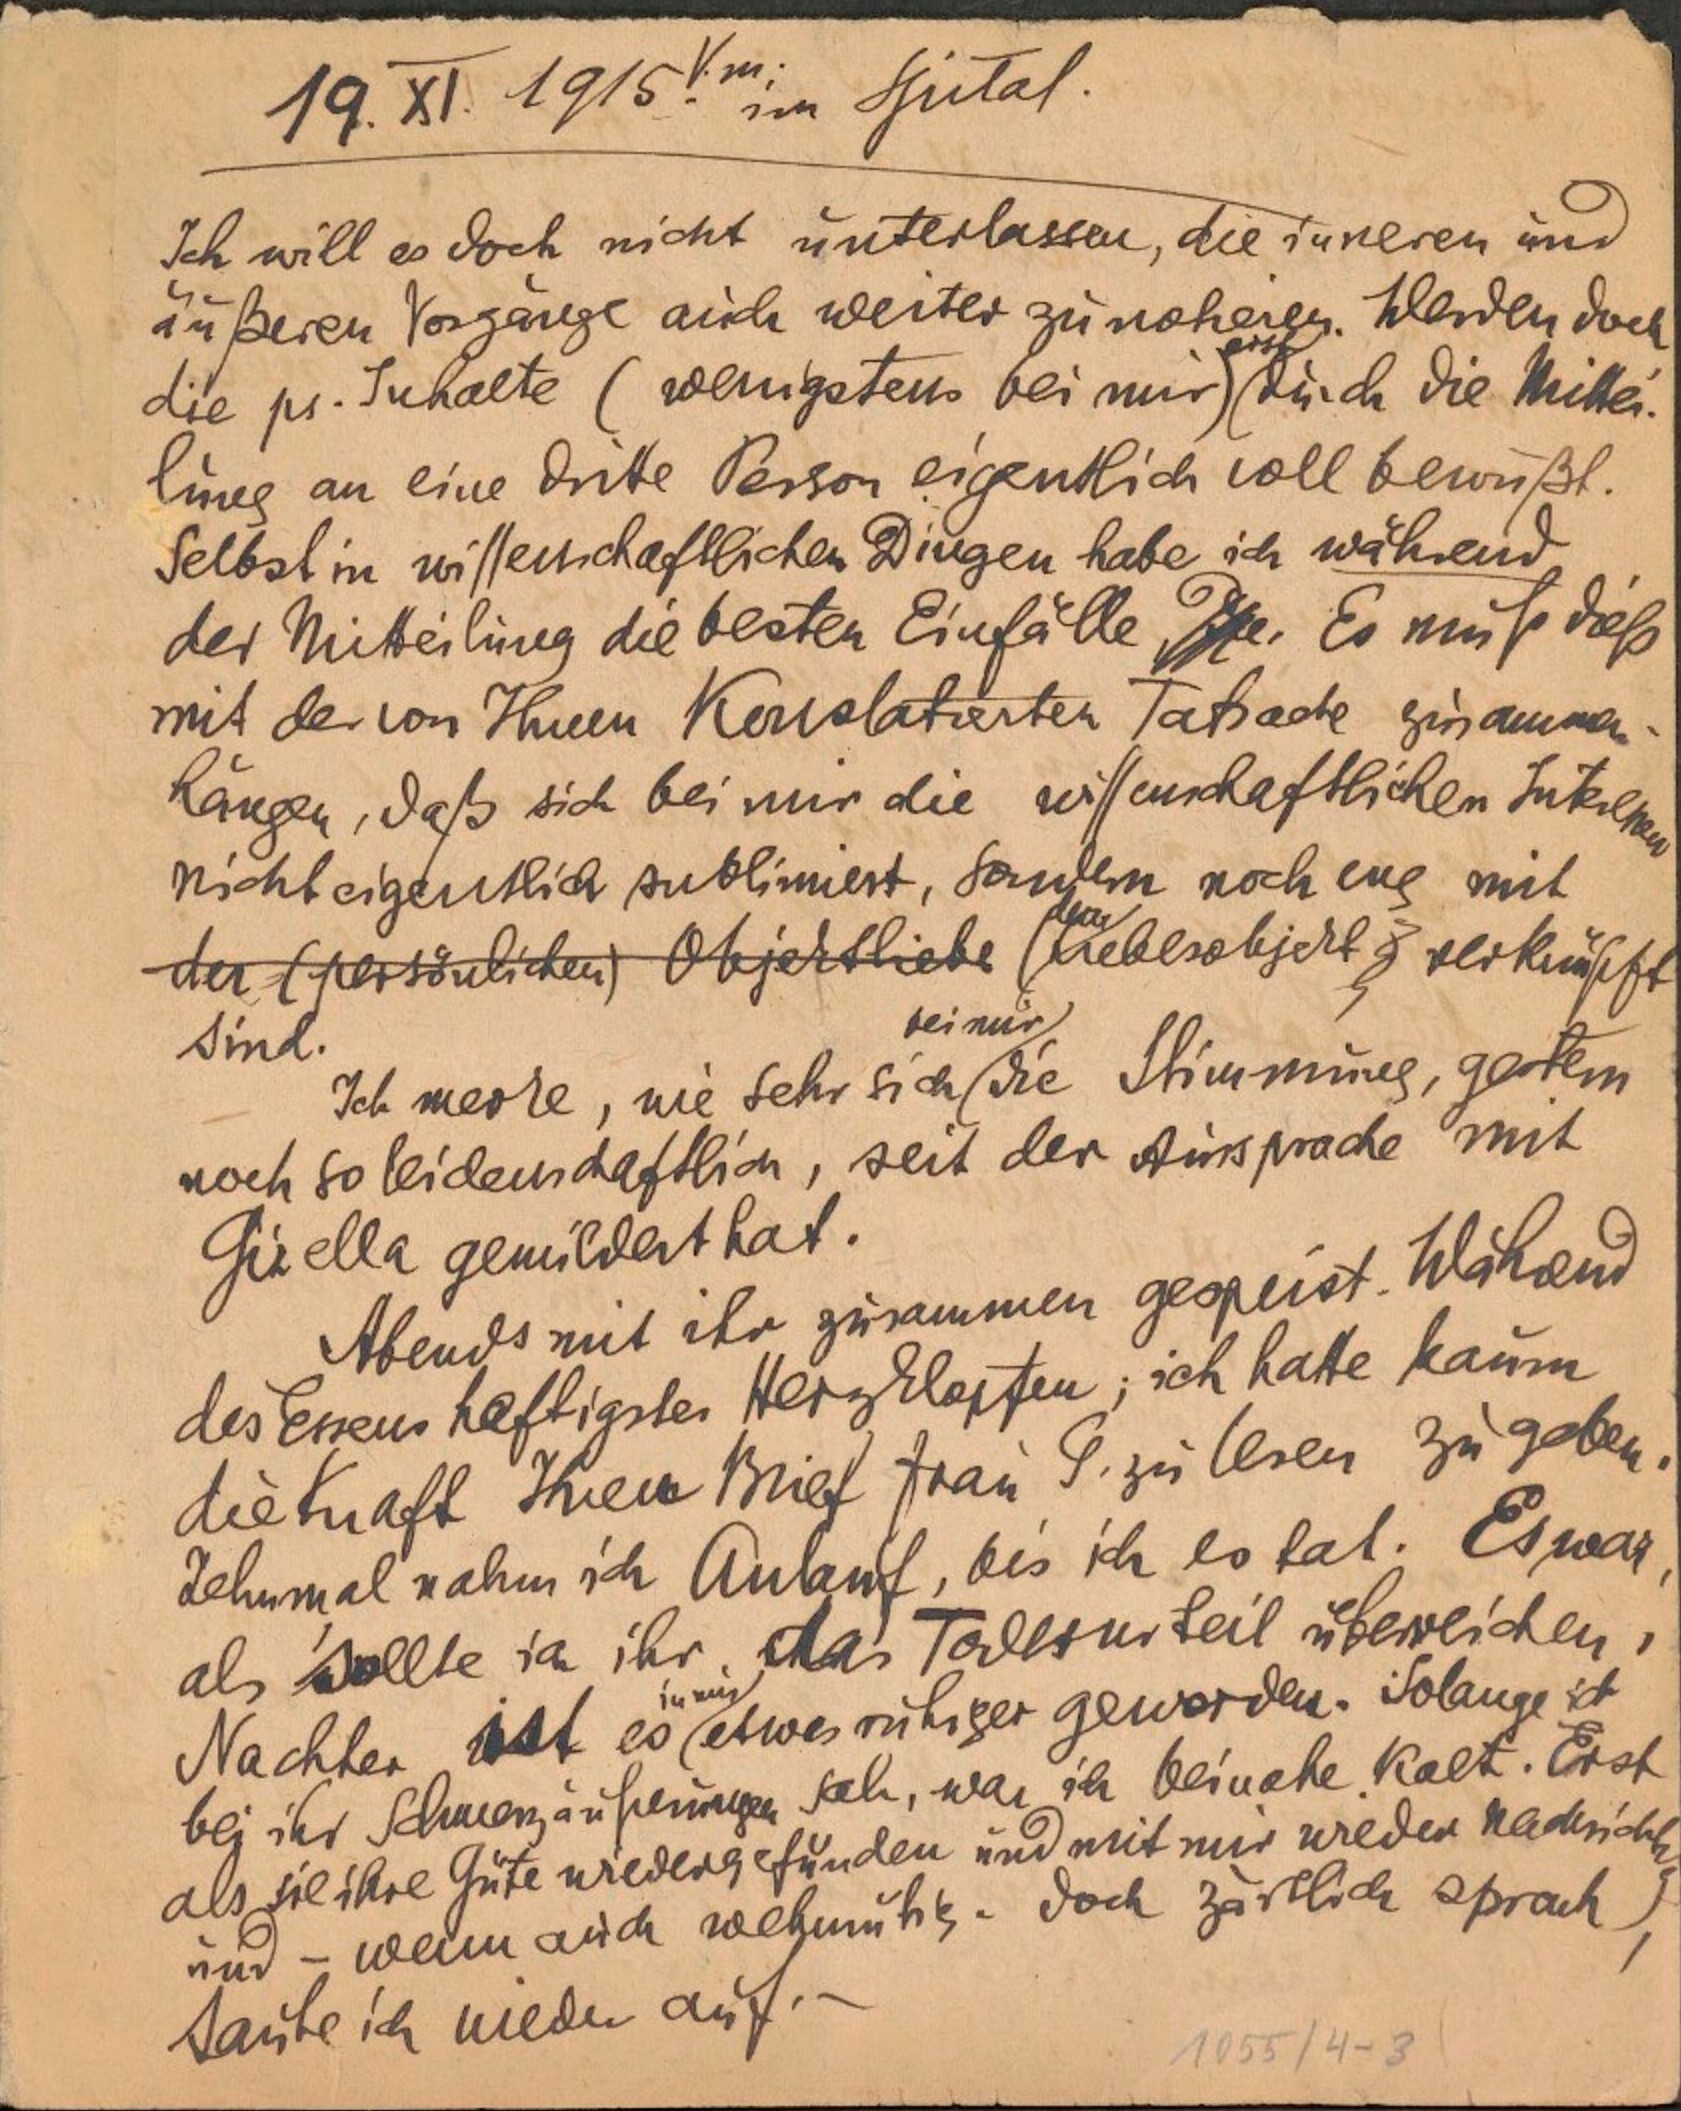 19. XI. 1915. V.m. im Spital.
Ich will es doch nicht unterlassen, die inneren und
äußeren Vorgänge auch weiter zu notieren. Werden doch
die ps. Inhalte (wenigstens bei mir) erst durch die Mittei-
lung an eine dritte Person eigentlich voll bewußt.
Selbst in wissenschaftlichen Dingen habe ich während
der Mitteilung die besten Einfälle. Es muß dieß
mit der von Ihnen Konstatierten Tatsache zusammen-
hängen, daß sich bei mir die wissenschaftlichen Interessen
nicht eigentlich sublimiert, sondern noch eng mit
der (persönlichen) Objektliebe dem Liebesobjekt verknüpft
sind.
Ich merke, wie sehr sich bei mir die Stimmung, gestern
noch so leidenschaftlich, seit der Aussprache mit
Gizella gemildert hat.
Abends mit ihr zusammen gespeist. Während
des Essens heftigstes Herzklopfen; ich hatte kaum
die Kraft Ihren Brief Frau G. zu lesen zu geben.
Zehnmal nahm ich Anlauf, bis ich es tat. Es war,
als sollte ich ihr das Todesurteil überreichen,
Nachher ist es in mir etwas ruhiger geworden. Solange ich
bei ihr Schmerzäußerungen sah, war ich beinahe kalt. Erst
als sie ihre Güte wiedergefunden und mit mir wieder nachsichtig
und – wenn auch wehmütig - doch zärtlich sprach,
taute ich wieder auf. –
1055/4-3